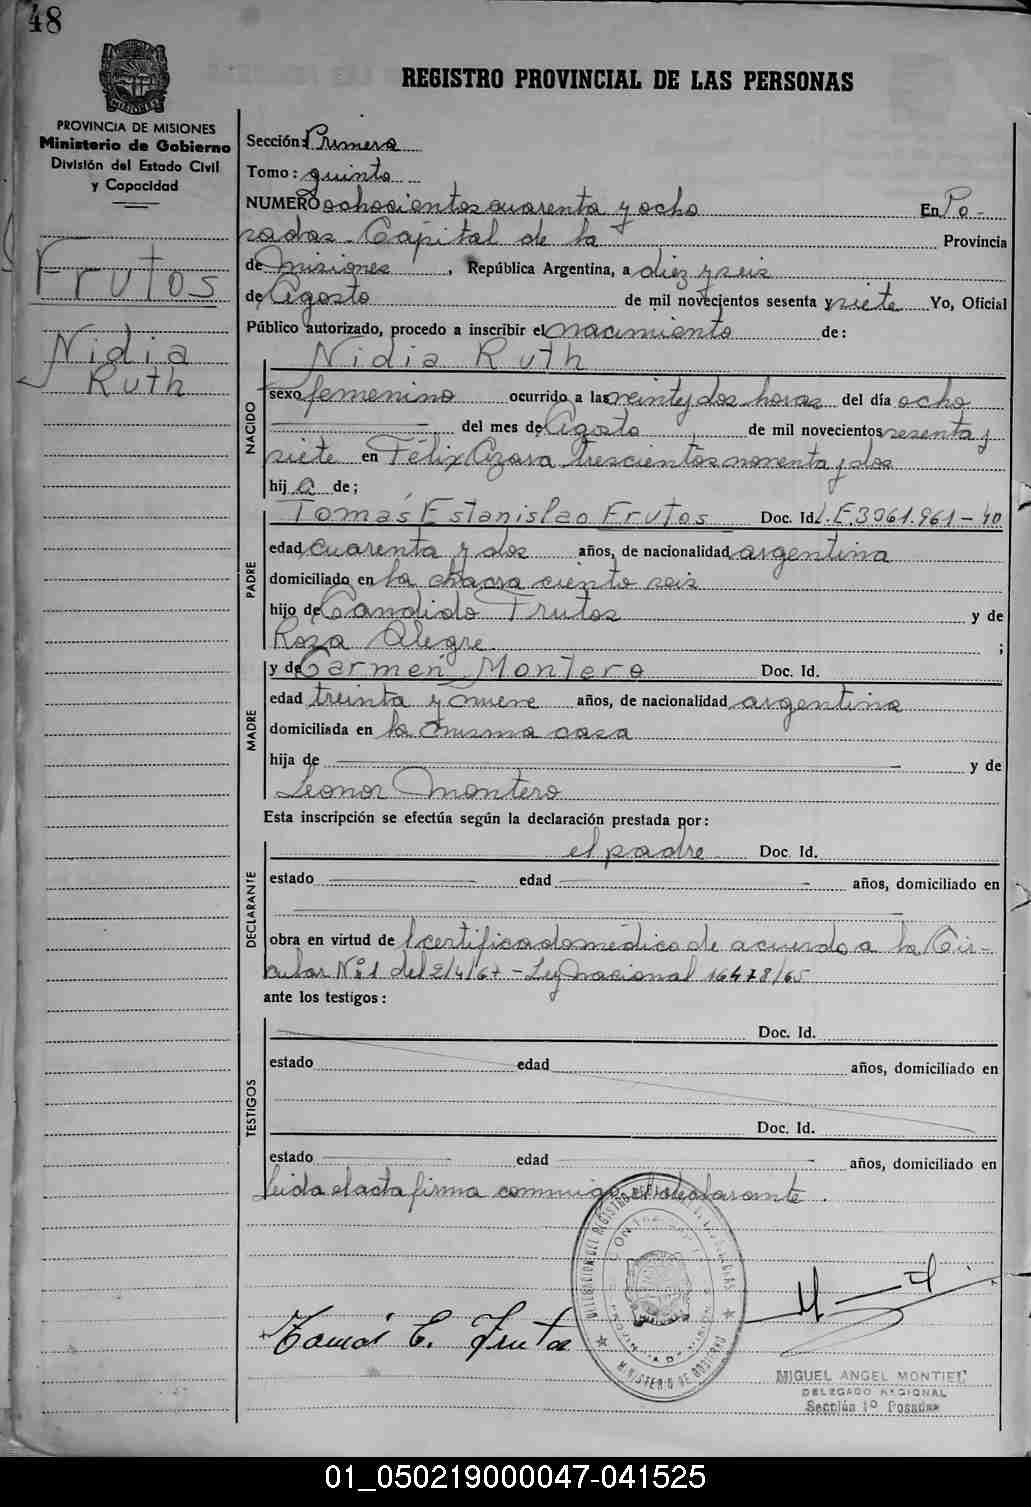 48
REGISTRO PROVINCIAL DE LAS PERSONAS
PROVINCIA DE MISIONES
Ministerio de Gobierno
División del Estado Civil
y Capacidad
Frutos
Nidia
Ruth
Sección: Primera
Tomo: quinto
NUMERO ochocientos cuarenta y ocho En Po-
sadas Capital de la Provincia
de Misiones, República Argentina, a diez y seis
de Agosto de mil novecientos sesenta y siete Yo, Oficial
Público autorizado, procedo a inscribir el nacimiento de:
Nidia Ruth
NACIDO
sexo femenino ocurrido a las veinte y dos horas del día ocho
del mes de Agosto de mil novecientos sesenta y
siete en Félix Azara trescientos noventa y dos
hij a de;
PADRE
Tomás Estanislao Frutos Doc. Id. L.E. 3061.961-40
edad cuarenta y dos años, de nacionalidad argentina
domiciliado en la chacra ciento seis
hijo de Candido Frutos y de
Rosa Alegre ;
MADRE
y de Carmen Montero Doc. Id.
edad treinta y nueve años, de nacionalidad argentina
domiciliada en la misma casa
hija de y de
Leonor Montero
Esta inscripción se efectúa según la declaración prestada por:
DECLARANTE
el padre Doc. Id.
estado edad años, domiciliado en
obra en virtud de l certificado médico de acuerdo a la Cir-
cular Nº 1 del 2/4/67 - Ley nacional 16478/65
ante los testigos:
TESTIGOS
Doc. Id.
estado edad años, domiciliado en
Doc. Id.
estado edad años, domiciliado en
leida el acta firma conmigo el declarante.
DELEGACION DEL REGISTRO DE LAS
MINISTERIO DE GOBIERNO
Tomás E. Frutos
MIGUEL ANGEL MONTIEL
DELEGADO REGIONAL
Sección 1º Posadas
01_050219000047-041525